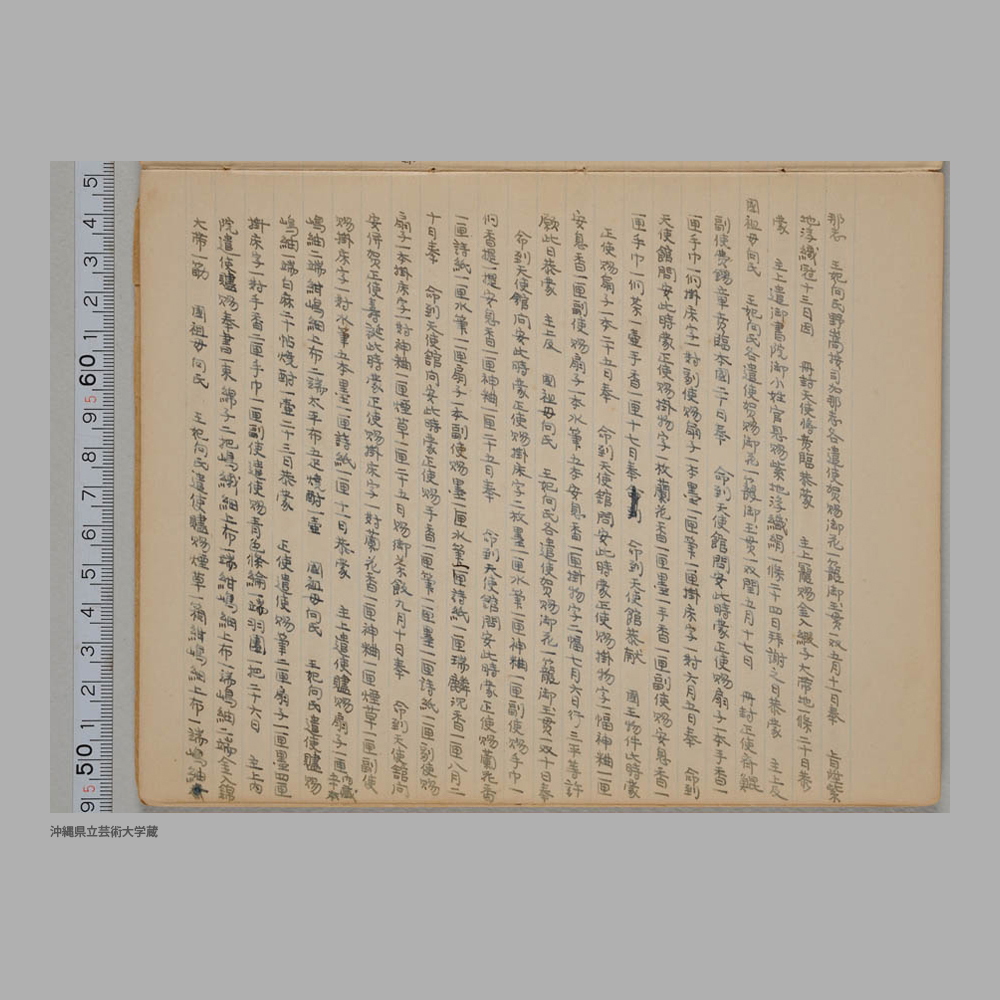 那志 王妃向氏野嵩按司加那志各遣使賀賜御花一籠御玉貫一双五月十日奉 旨
地浮織冠十三日因 冊封天使信貴臨恭蒙 主上寵賜金入緞子大帯地一條二十日恭
蒙 主上遣御書院御小姓官恩賜紫地浮織絹一條二十四日拜謝之日恭蒙 主上及
國祖母向氏 王妃向氏各遣使賀賜御花一籠御玉貫一双閏五月十七日 冊封正使齊鯤
副使費錫章賁臨本國二十日奉 命到天使館問安此時蒙正使賜扇子一本手香一
匣手巾一份掛床字一對副使賜扇子一本墨一匣筆一匣掛床字一對六月五日奉 命到
天使館問安此時蒙正使賜掛物字一枚蘭花香一匣墨一手香一匣副使賜安息香一
匣手巾一份茶一壷手香一匣十七日奉 命到天使館恭献 國王物件此時蒙
正使賜扇子一本二十五日奉 命到天使館問安此時蒙正使賜掛物字一幅神粬一匣
安息香一匣副使賜扇子一本水筆五本安息香一匣掛物字二幅七月六日行三平等許
願此日恭蒙 主上及 國祖母向氏 王妃向氏各遣使賀賜御花一籠御玉貫一双十日奉
命到天使館向安此時蒙正使賜掛床字二枚墨一匣水筆一匣神粬一匣副使賜手巾一
份香提一提安息香一匣神粬一匣二十五日奉 命到天使館問安此時蒙正使賜蘭花香
一匣詩紙一匣水筆一匣扇子一本副使賜墨一匣水筆一匣詩紙一匣瑞麟沉香一匣八月二
十日奉 命到天使館向安此時蒙正使賜手香一匣筆一匣墨一匣詩紙一匣副使賜
扇子一本掛床字一對神粬一匣煙草一匣二十五日賜御茶飯九月十日奉 命到天使館向
安併賀正使壽誕此時蒙正使賜掛床字一對蘭花香一匣神粬一匣煙草一匣副使
賜掛床字一對水筆五本墨一匣詩紙一匣十一日恭蒙 主上遣使贐賜扇子一匣
嶋紬二端紺嶋細上布二端太平布五疋燒酎一壷 國祖母向氏 王妃向氏遣使贐賜
嶋紬一端白麻二十帖燒酎一壷二十三日恭蒙 正使遣使賜筆二匣扇子一匣墨四匣
掛床字一對手香二匣手巾一匣副使遣使賜青色條綸一端羽團一把二十六日 主上内
院遣使贐賜奉書一束綿子二把嶋織細上布一端紺嶋細上布一端嶋紬二端金入錦
大帯一筋 國祖母向氏 王妃向氏遣使贐賜煙草一筒紺嶋細上布一端嶋紬
沖縄県立芸術大学蔵